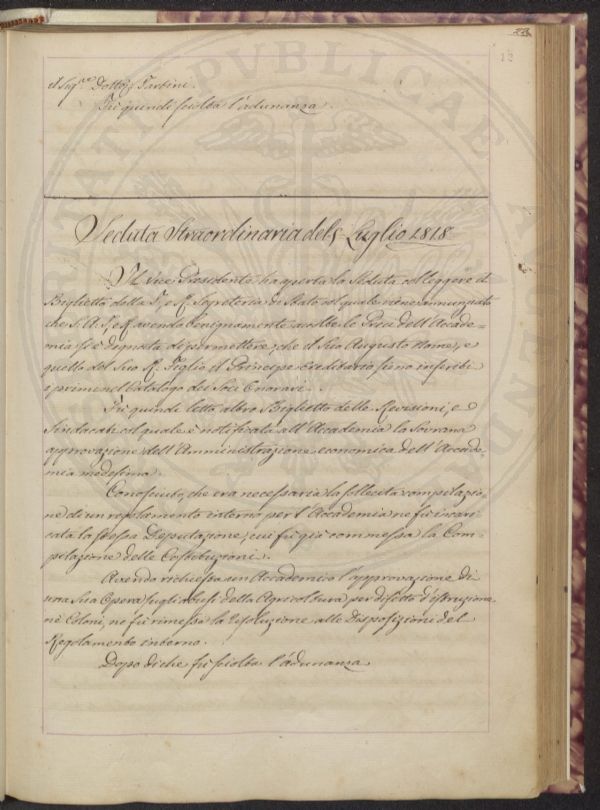 il Sig.re Dottor Tartini.
Fu quindi sciolta l'adunanza.
Seduta Straordinaria del 5 Luglio 1818
Il Vice Presidente ha aperta la Seduta col leggere il
Biglietto della I. e R. Segreteria di Stato col quale viene annunziato
che S. A. I. e R. avendo benignamente accolte le Preci dell'Accade-
mia si è degnata di permettere, che il Suo Augusto Nome, e
quello del Suo R. Figlio il Principe Ereditario siano inseriti
i primi nel Catalogo dei Soci Onorari.
Fu quindi letto altro Biglietto delle Revisioni, e
Sindacati col quale è notificata all'Accademia la Sovrana
approvazione dell'Amministrazione economica dell'Accade-
mia medesima.
Conosciuto, che era necessaria la sollecita compilazio-
ne di un regolamento interno per l'Accademia ne fu incari-
cata la stessa Deputazione, cui fu già commessa la Com-
pilazione delle Costituzioni.
Avendo richiesta un Accademico l'approvazione di
una Sua Opera sugli abusi della Agricoltura per difetto d'istruzione
nei Coloni, ne fu rimessa la risoluzione alle Disposizioni del
Regolamento interno.
Dopo di che fu sciolta l'adunanza